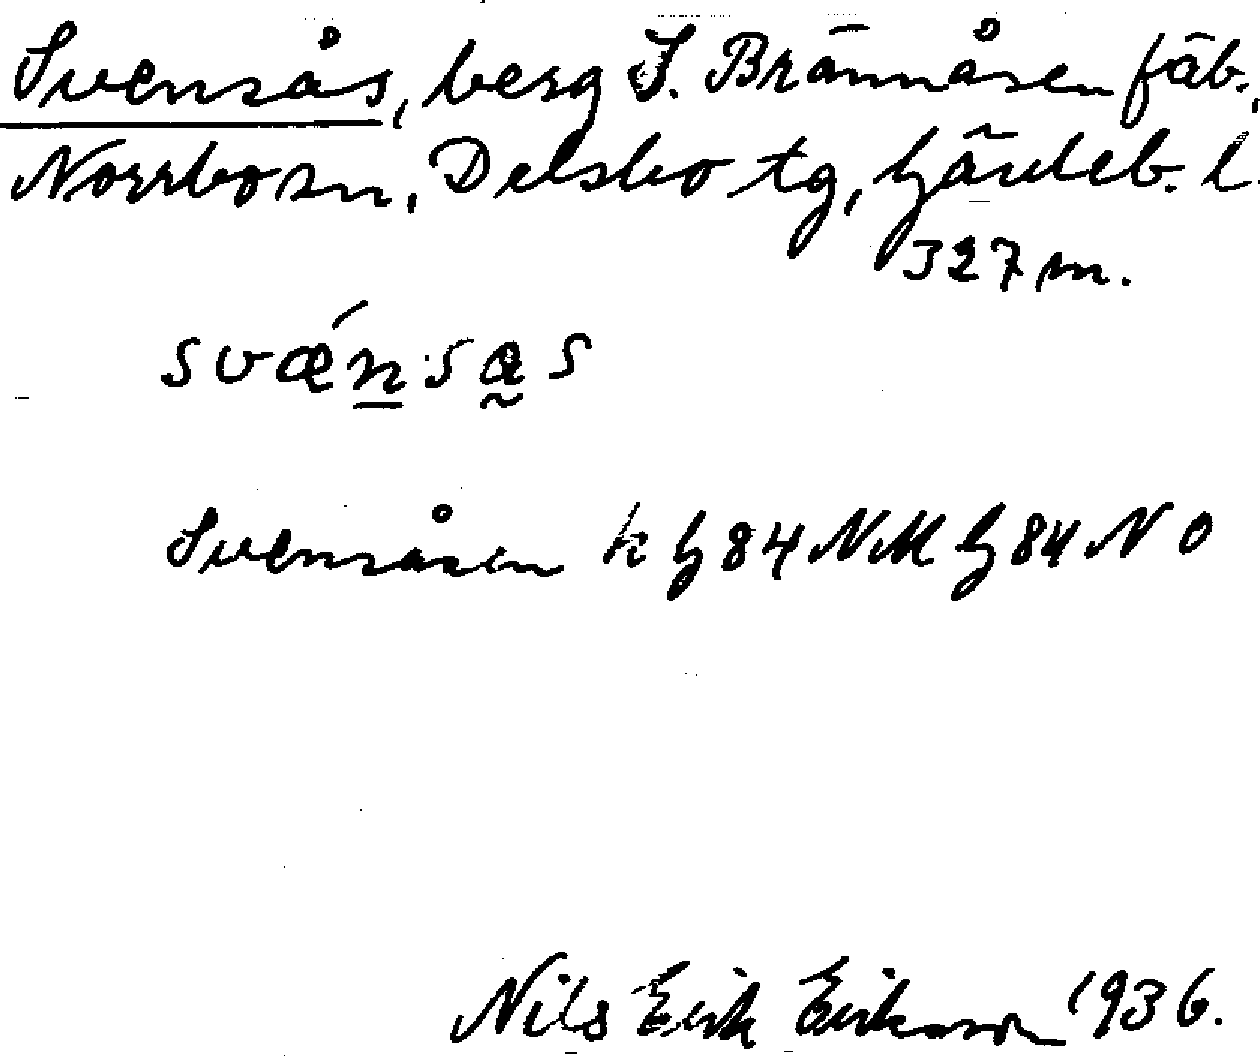 Svensås, berg S. Brännåsen fäb.,
Norrbo sn, Delsbo tg, Gävleb. l.
327 m.
svǽnsas
Svensåsen k G84NM G84NO
Nils Erik Eriksson 1936.